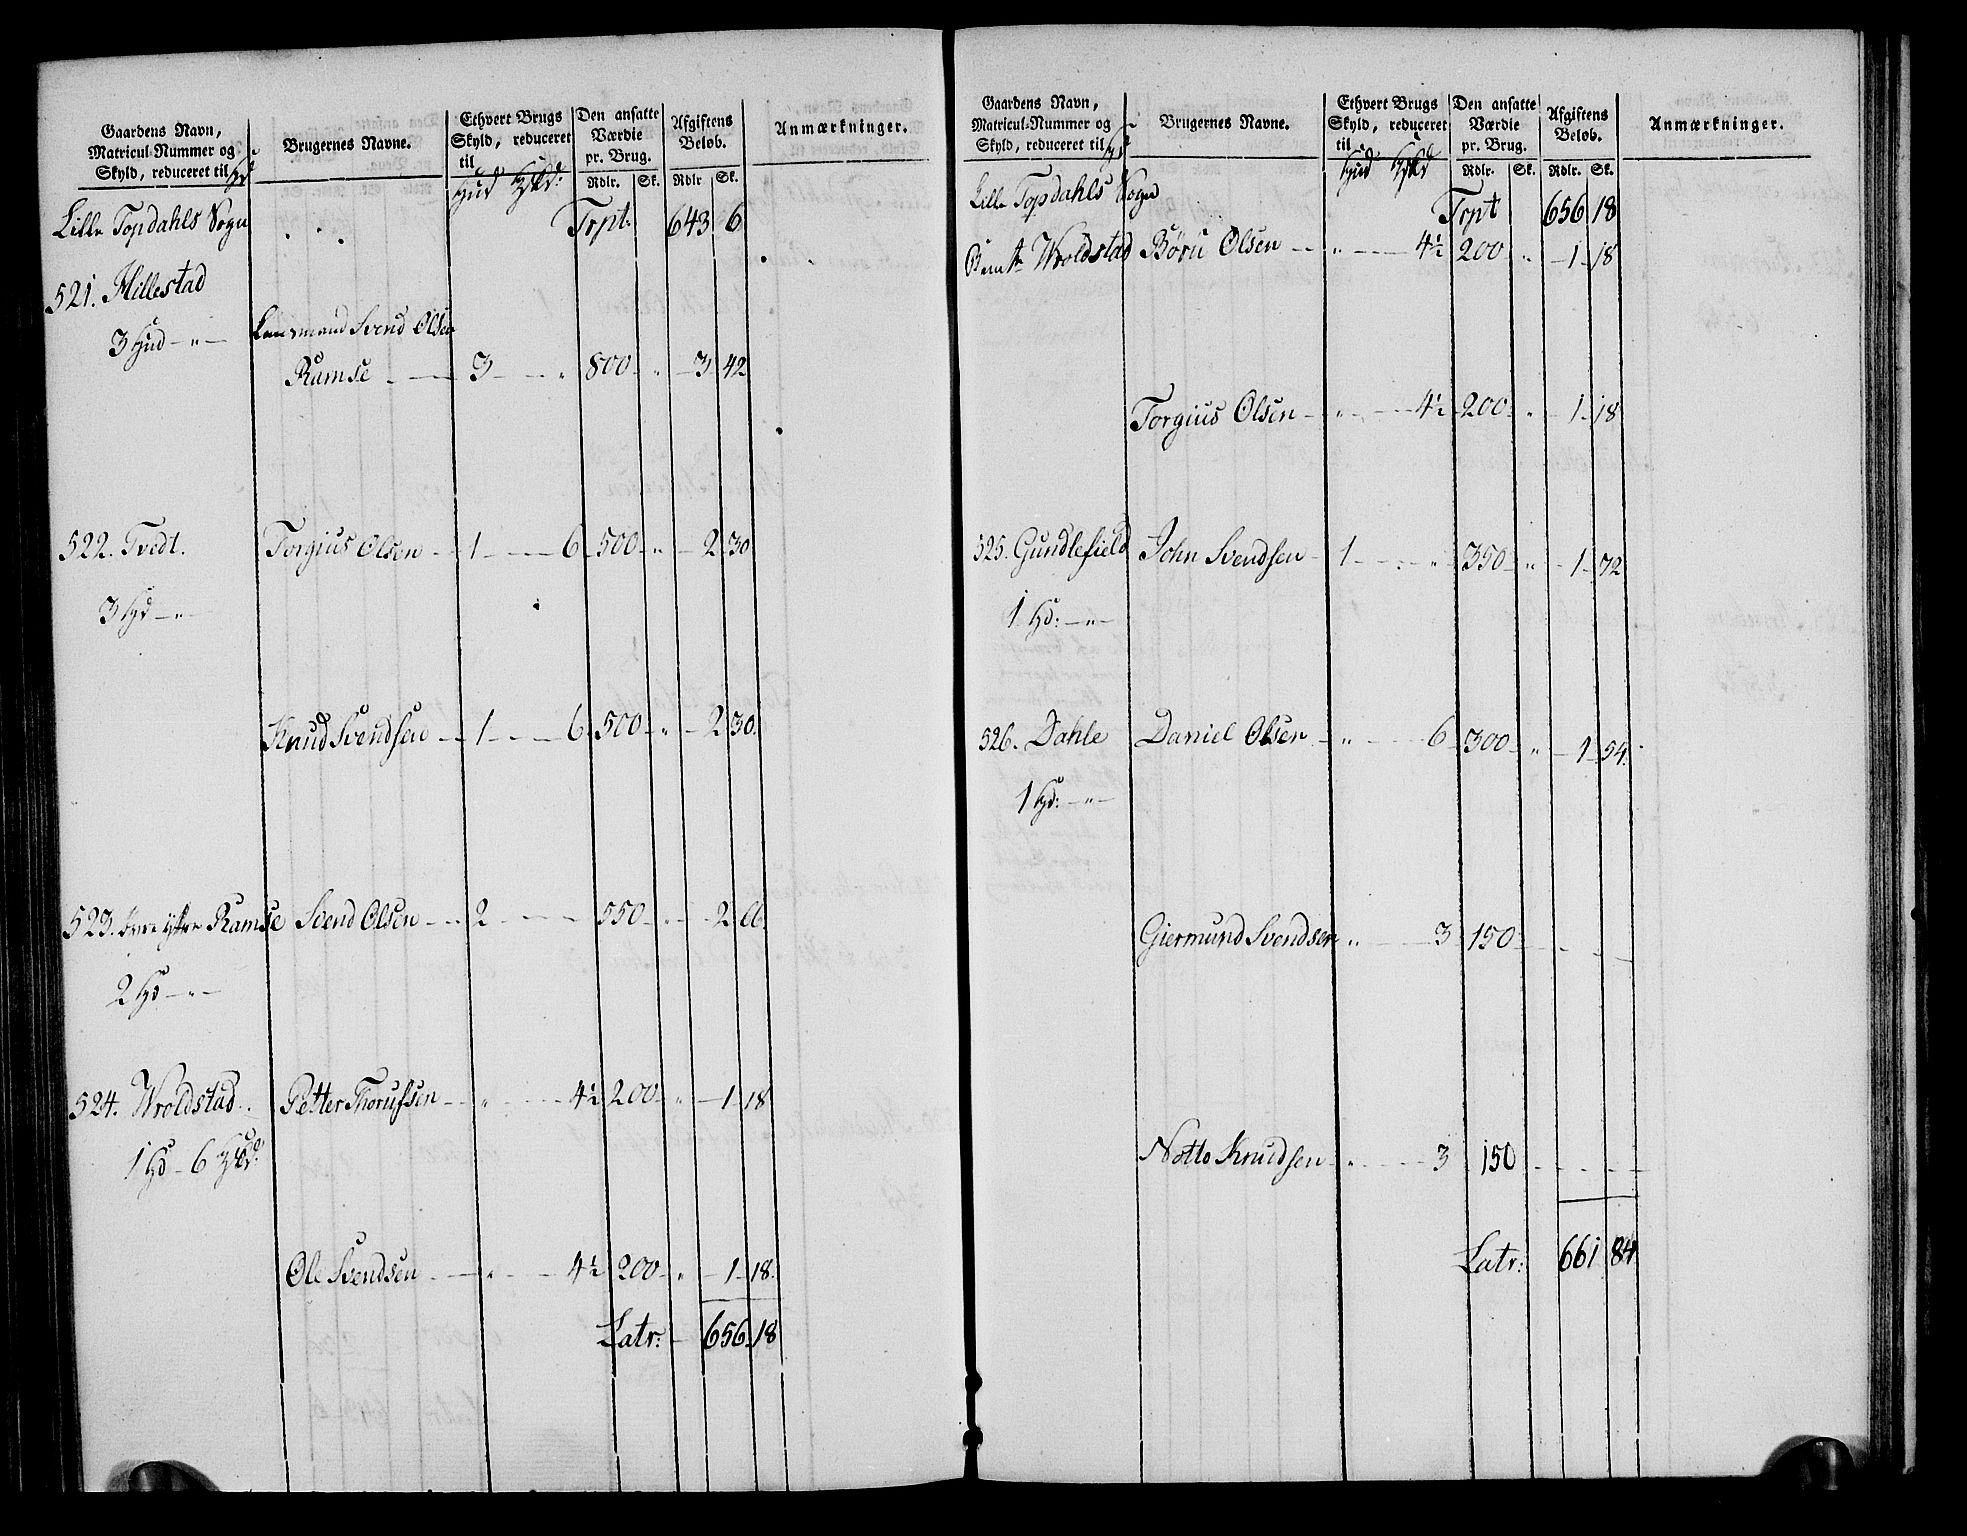 Gaardens Navn,
Matricul-Nummer og
Skyld, reduceret til
Brugernes Navne.
Ethvert Brugs
Skyld, reduceret
til
Hud
Den ansatte
Værdie
pr. Brug.
Rdlr. Sk.
Afgiftens
Beløb.
Rdlr Sk.
Anmærkninger.
Lille Topdahls Sogn Trpt: 643 6
521. Hillestad
3 Hud - " - Lensmand Svend Olsen
Ramse 3 " 800 " 3 42
522. Tvedt. Torgius Olsen 1 6 500 " 2 30
3 Hd - " -
Knud Svendsen 1 6 500 " 2 30.
523. Ramse Svend Olsen 2 550 " 2 66.
2 Hd - " -
524. Wroldstad. Petter Thorufsen " 4½ 200 " 1 18
1 Hd - 6
Ole Svendsen " 4½ 200 " 1 18.
Latr: 656 18
Gaardens Navn,
Matricul-Nummer og
Skyld, reduceret til
Brugernes Navne.
Ethvert Brugs
Skyld, reduceret
til
Hud
Den ansatte
Værdie
pr. Brug.
Rdlr. Sk.
Afgiftens
Beløb.
Rdlr. Sk.
Anmærkninger.
Lille Topdahls Sogn Trpt 656 18
Wroldstad Børu Olsen " 4½ 200 " 1 18
Torgius Olsen " 4½ 200 " 1 18
525. Gundlefield John Svendsen 1 " 350 " 1 72
1 Hd: - " -
526. Dahle Daniel Olsen " 6 300 " 1 54.
1 Hd: - " -
Giermund Svendsen " 3 150
Notto Knudsen " 3 150
Latr: 661 84